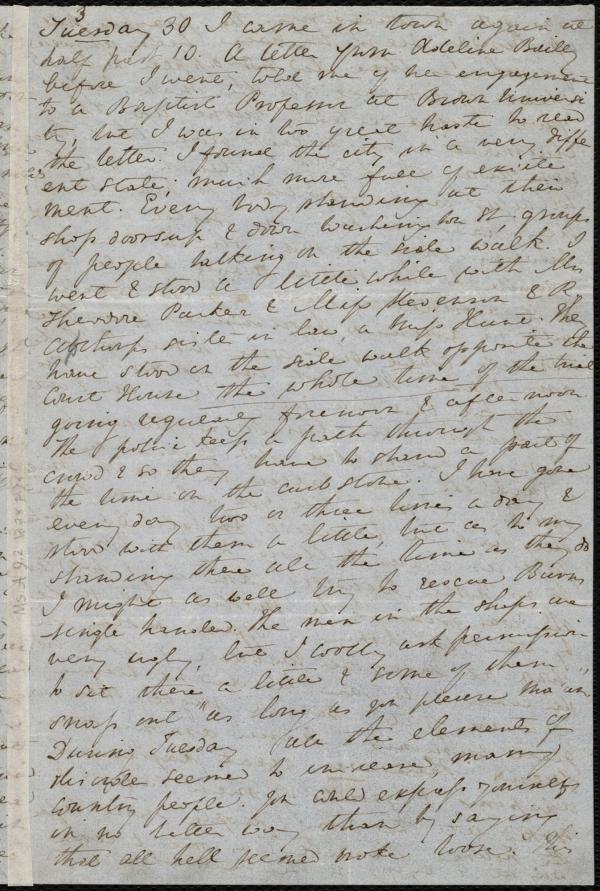 3
Tuesday 30 I came in town again at
half past 10. A letter from Adeline Bailey
before I went, told me of her engagement
to a Baptist Professor at Brown Universi
ty, but I was in too great haste to read
the letter. I found the city in a very differ
ent state; much more full of excite
ment. Every body standing at their
shop doors up & down Washington St, groups
of people talking on the side walk. I
went & stood a little while with Mrs
Theodore Parker & Miss Stevenson & R.
Apthorps sister in law, a Miss Hunt. They
have stood on the side walk opposite the
Court House the whole time of the trial
going regularly forenoon & afternoon
The police keep a path through the
crowd & so they have to stand a part of
the time on the curb stone. I have gone
every day two or three times a day &
stood with them a little, but as to my
standing there all the time as they do
I might as well try to rescue Burns
single handed. The men in the shops are
very ugly, but I coolly ask permission
to sit there a little & some of them
snap out "as long as you please ma'am"
During Tuesday all the elements of
discord seemed to increase, many
country people. You could express yourself
in no better way than by saying
that all hell seemed broke loose. This
Ms. A 9.2